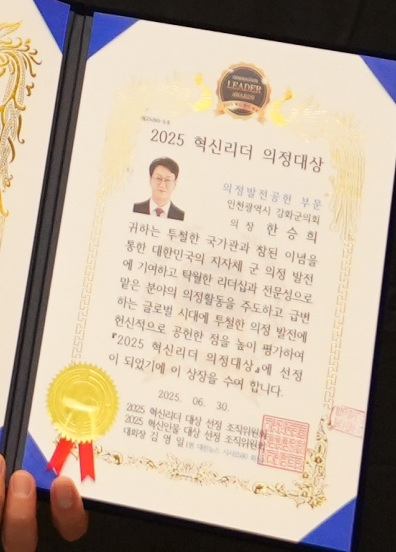 LEADER
2025 혁신리더 의정대상
의정발전공헌 부문
인천광역시 강화군의회
의 장 한 승 희
귀하는 투철한 국가관과 참된 이념을
통한 대한민국의 지자체 군 의정 발전
에 기여하고 탁월한 리더십과 전문성으로
맡은 분야의 의정활동을 주도하고 급변
하는 글로벌 시대에 투철한 의정 발전에
헌신적으로 공헌한 점을 높이 평가하여
『2025 혁신리더 의정대상』에 선정
이 되었기에 이 상장을 수여 합니다.
2025. 06. 30.
2025 혁신리더 대상 선정 조직위원회
2025 혁신인물 대상 선정 조직위원회
대회장 김 영 일